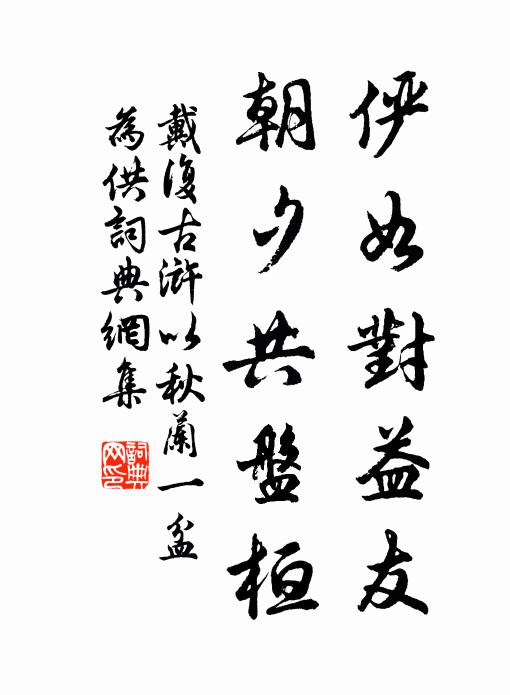 儼如對益友
朝夕共盤桓
戴復古滸以秋蘭一盆
為供詞典網集
詞典
网印